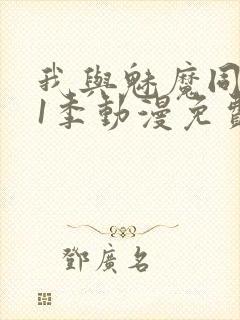 我與魅魔同
1季動漫免費
鄧廣名